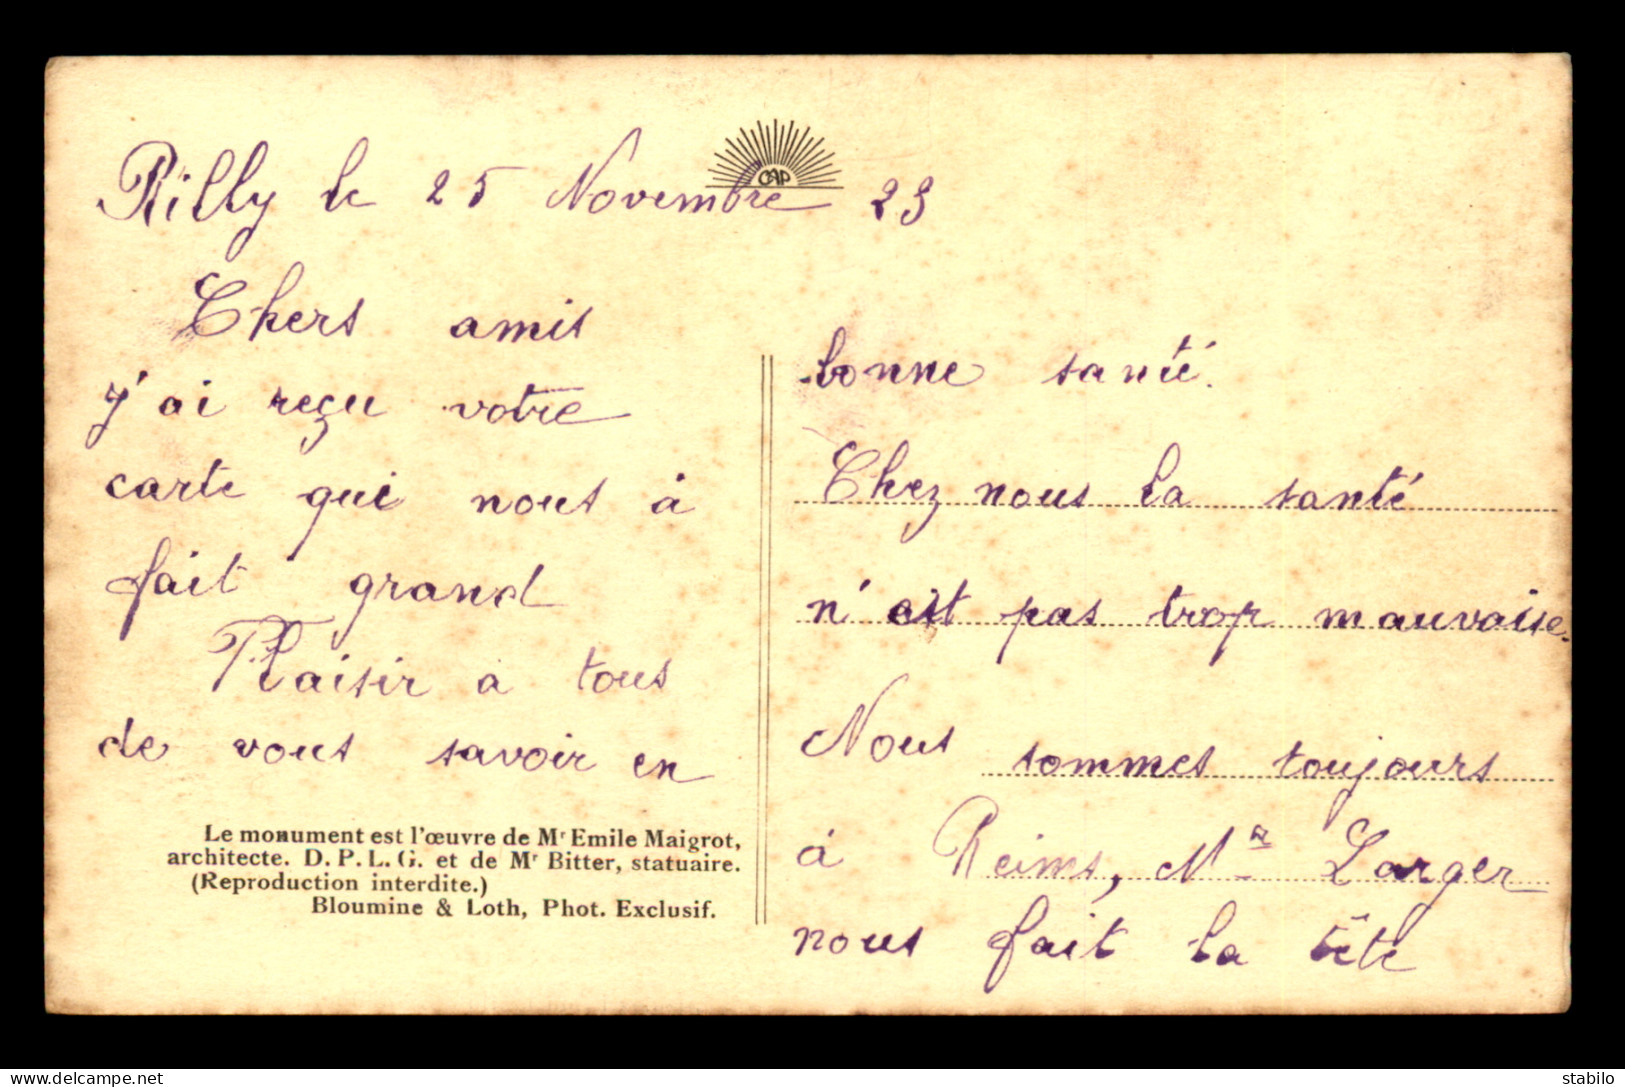 Rilly le 25 Novembre 23
CAP
Chers amis
j'ai reçu votre
carte qui nous à
fait grand
Plaisir a tous
de vous savoir en
Le monument est l'œuvre de Mr Emile Maigrot,
architecte. D. P. L. G. et de Mr Bitter, statuaire.
(Reproduction interdite.)
Bloumine & Loth, Phot. Exclusif.
bonne santé.
Chez nous la santé
n'est pas trop mauvaise.
Nous sommes toujours
à Reims, Mr Larger
nous fait la tête
stabilo